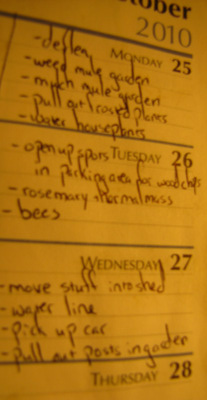 October
2010
- deflea
MONDAY 25
- weed mule garden
- mulch mule garden
- pull out
- water houseplants
- open up spots
TUESDAY 26
in parking area for woodchips
- rosemary + formal moss
- bees
WEDNESDAY 27
- move stuff into shed
- water line
- pick up car
- pull out posts in garden
THURSDAY 28